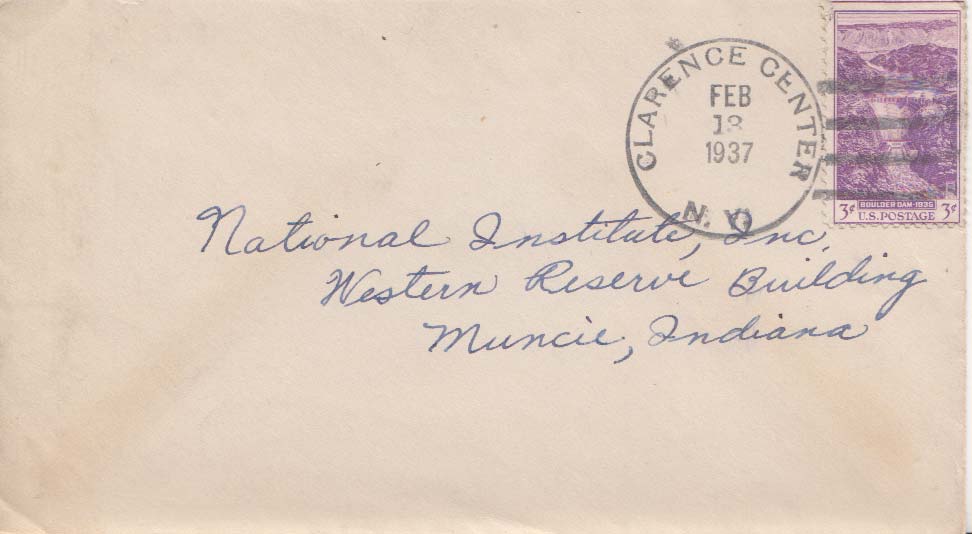 CLARENCE CENTER
FEB
13
1937
N. Y.
BOULDER DAM-1935
3¢ U.S. POSTAGE 3¢
National Institute, Inc.
Western Reserve Building
Muncie, Indiana